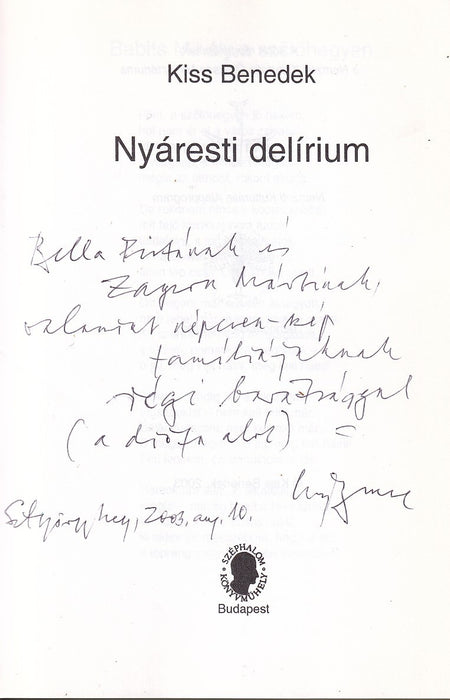 Kiss Benedek
Nyáresti delírium
Bella és
Zágon Mártinak,
valamint
famíliájuknak
régi barátsággal
(a diófa alól) =
Sztgyörgyhegy, 2003, aug. 10.
SZÉPHALOM
KÖNYVMŰHELY
Budapest